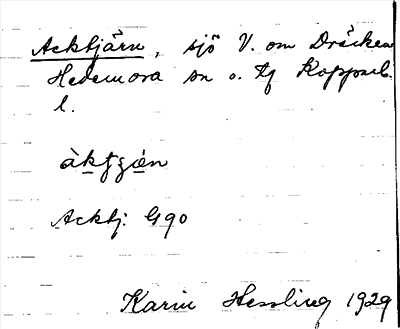 Acktjärn, sjö V. om Dräcken
Hedemora sn o. tg Kopparb.
l.
Acktj. G90
Karin Hessling 1929